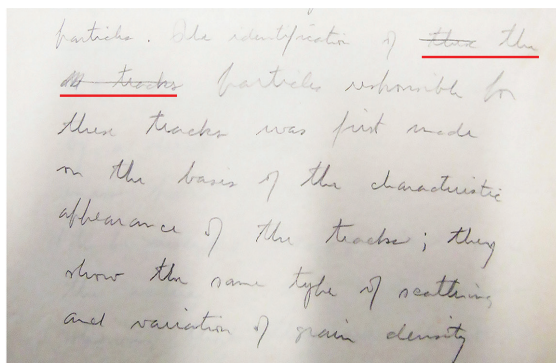 particles. The identification of these the
tracks particles responsible for
these tracks was first made
on the basis of the characteristic
appearance of the tracks; they
show the same type of scattering
and variation of grain density